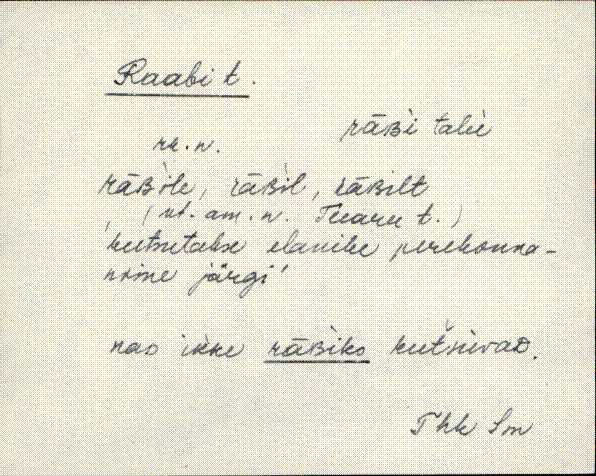 Raabi t.
rāʙi talu
rh.n.
rāʙìle, rāʙìl, rāʙilt
(vt. am. n. Tuaru t.)
kutsutakse elanike perekonna-
nime järgi'
nao ikke rāʙiks kutšuvaᴅ.
Thk Sm